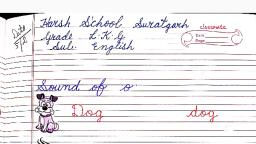 Harsh School Suratgarh
classmate
Date
Page
Date
5/5
Grade L.K.G
Sub:- English
Sound of o
Dog dog